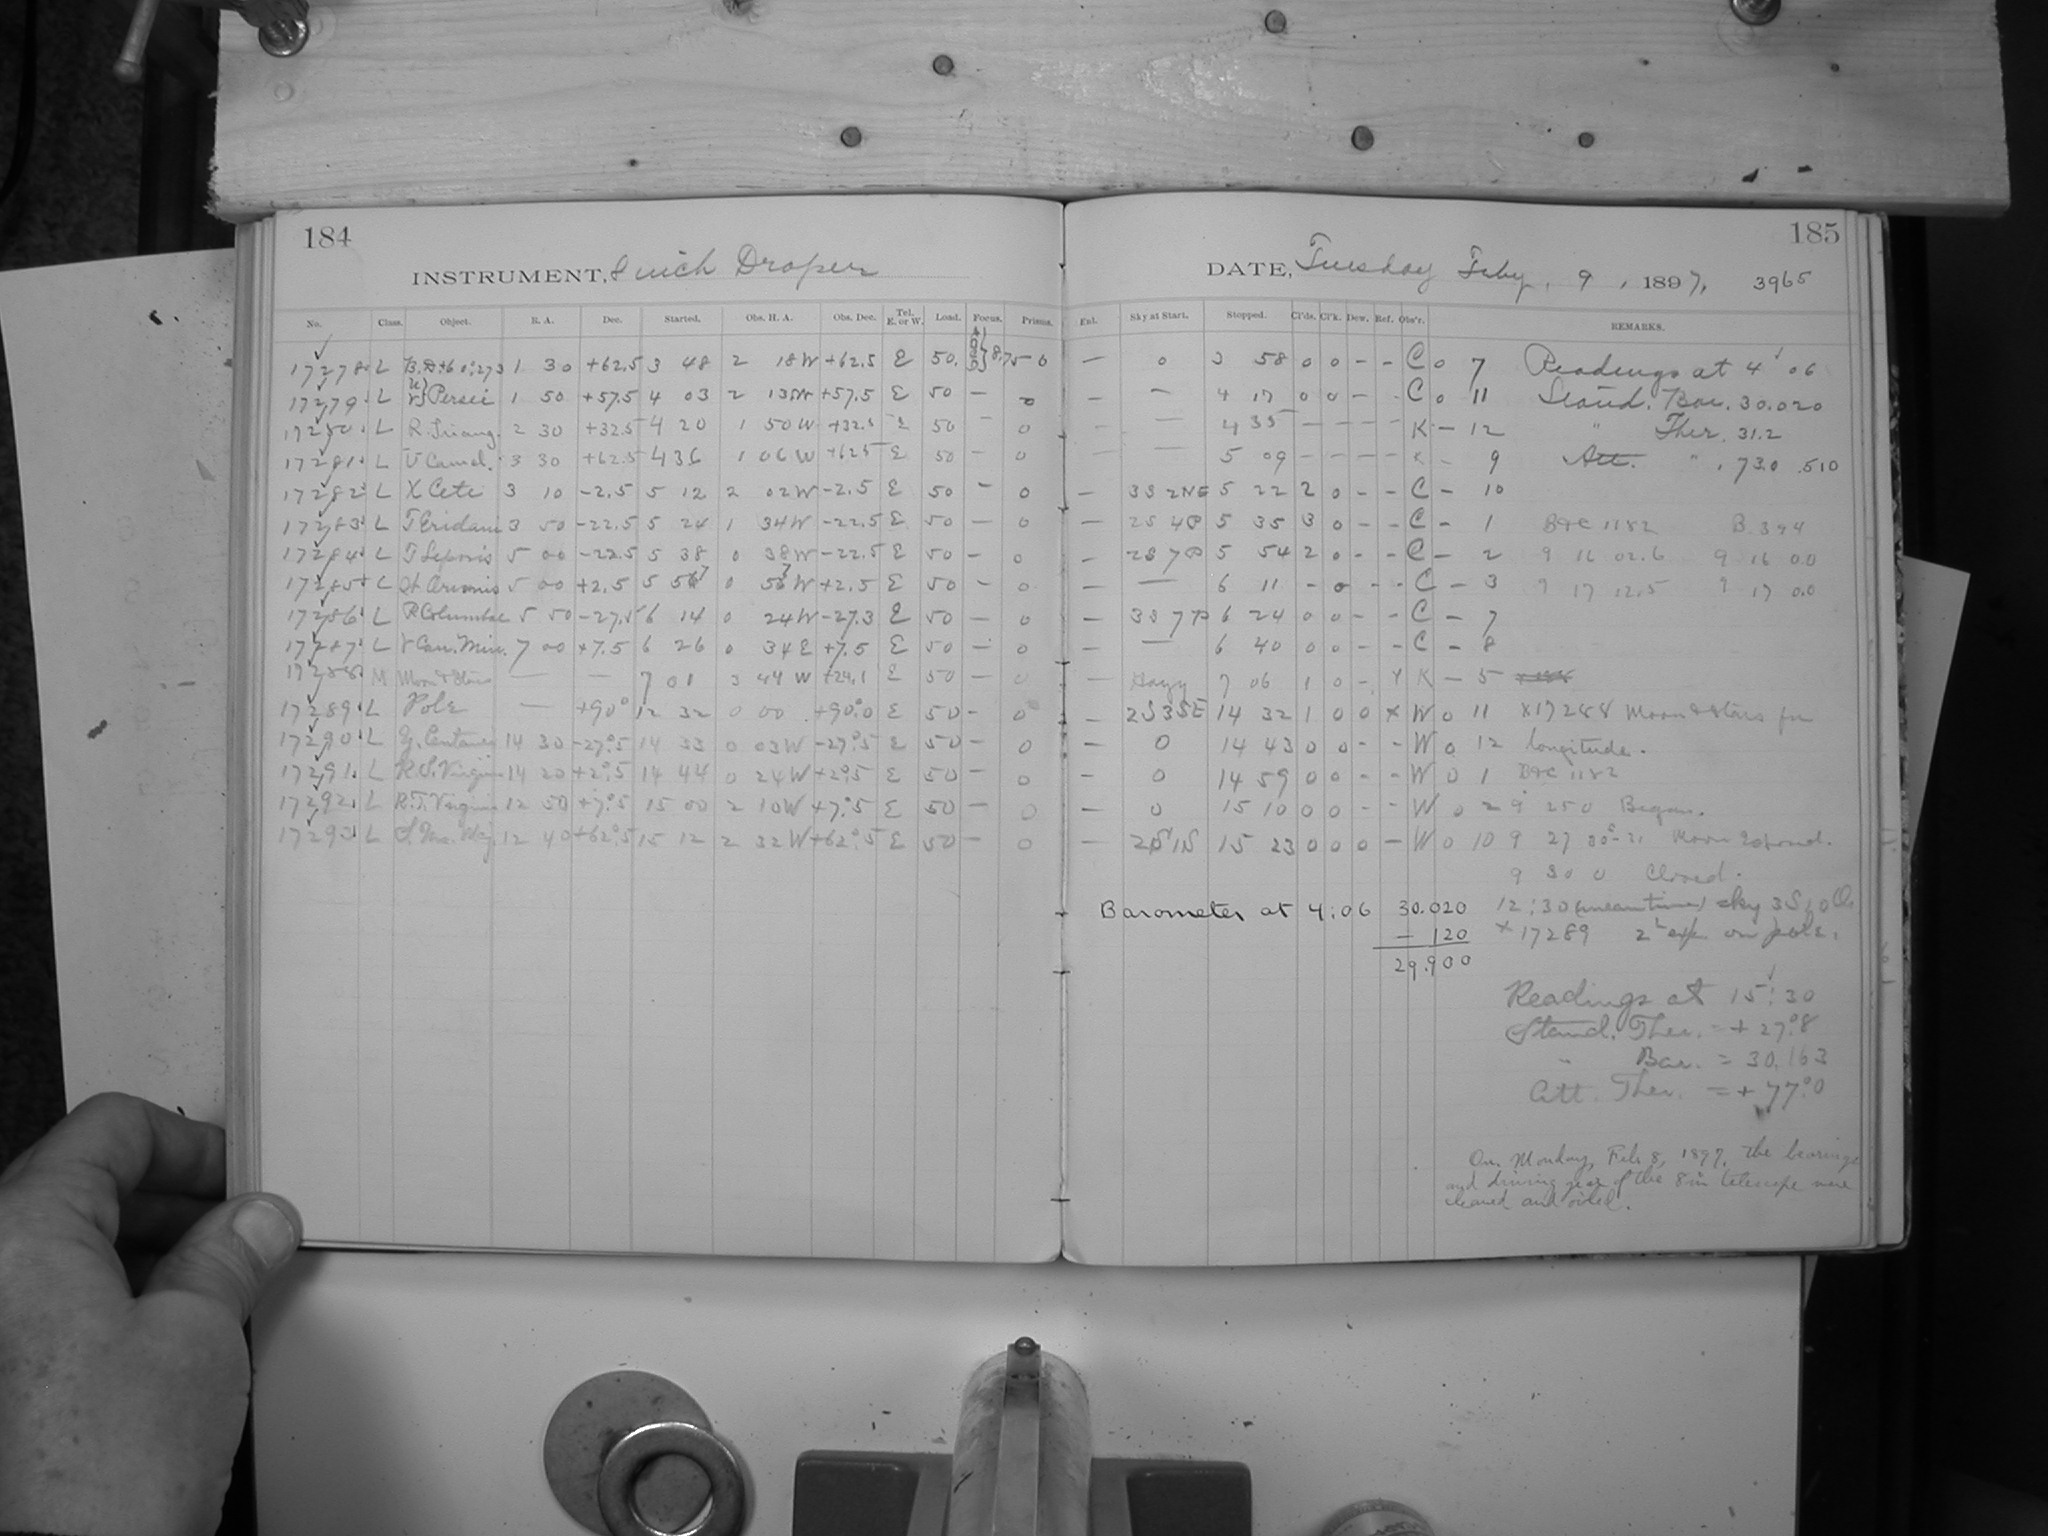 184
INSTRUMENT, 8 inch Draper
No. Class. Object. R. A. Dec. Started. Obs. H. A. Obs. Dec. Tel. E. or W. Load. Focus. Prisms.
17278 L B.D+61°273 1 30 +62.5 3 48 2 18W +62.5 E 50. 8.75 0
17279 L Persei 1 50 +57.5 4 03 2 13W +57.5 E 50 — 0
17280 L R.Triang. 2 30 +32.5 4 20 1 50W +32.5 E 50 – 0
17281 L U Camel. 3 30 +62.5 4 36 1 06W +62.5 E 50 – 0
17282 L X Ceti 3 10 -2.5 5 12 2 02W -2.5 E 50 – 0
17283 L T Eridani 3 50 -22.5 5 24 1 34W -22.5 E 50 — 0
17284 L T Leporis 5 00 -22.5 5 38 0 38W -22.5 E 50 – 0
17285 L Orionis 5 00 +2.5 5 57 0 57W +2.5 E 50 – 0
17286 L R Columbae 5 50 -27.5 6 14 0 24W -27.3 E 50 — 0
17287 L V Can. Min. 7 00 +7.5 6 26 0 34E +7.5 E 50 – 0
17288 M Moon & Stars — — 7 01 3 44 W +24.1 E 50 — 0
17289 L Pole — +90° 12 32 0 00 +90°.0 E 50 – 0
17290 L Centauri 14 30 -27°.5 14 33 0 03W -27°.5 E 50 — 0
17291 L R.S.Virginis 14 20 +2°.5 14 44 0 24W +2°.5 E 50 – 0
17292 L R.T.Virginis 12 50 +7°.5 15 00 2 10W +7°.5 E 50 — 0
17293 L S.Urs. Maj. 12 40 +62°.5 15 12 2 32W +62°.5 E 50 — 0
185
DATE, Tuesday Feby. 9, 1897, 3965
Enl. Sky at Start. Stopped. Cl'ds. Cl'k. Dew. Ref. Obs'r. REMARKS.
— 0 3 58 0 0 – – C 0 7 Readings at 4 06
– — 4 17 0 0 – – C 0 11 Stand. Bar. 30.020
– — 4 35 – – – – K – 12 " Ther. 31.2
— 5 09 – – – – K – 9 Att. " . 73.0 .510
– 3S 2NE 5 22 2 0 – – C – 10
– 2S 4P 5 35 3 0 – – C – 1 B&C 1182 B.394
– 2S 7P 5 54 2 0 – – C – 2 9 16 02.6 9 16 00
– — 6 11 – 0 – – C – 3 9 17 12.5 9 17 0.0
– 3S 7P 6 24 0 0 – – C – 7
– — 6 40 0 0 – – C – 8
– Hazy 7 06 1 0 – Y K – 5
– 2S3SE 14 32 1 0 0 × W 0 11 ×17288 Moon & Stars for
– 0 14 43 0 0 – – W 0 12 longitude.
– 0 14 59 0 0 – – W 0 1 B&C 1182
– 0 15 10 0 0 – – W 0 2 9 25 0 Began.
– 2S1S 15 23 0 0 0 – W 0 10 9 27 Moon exposed.
9 30 0 Closed.
Barometer at 4:06 30.020 12:30 (meantime) sky 3S,0
— 120 ×17289 2h exp. on pole.
29.900
Readings at 15:30
Stand. Ther. = + 27°.8
" Bar. = 30.163
Att. Ther. = + 77°.0
On Monday, Feb. 8, 1897, the bearings
and driving gear of the 8 in telescope were
cleaned and oiled.